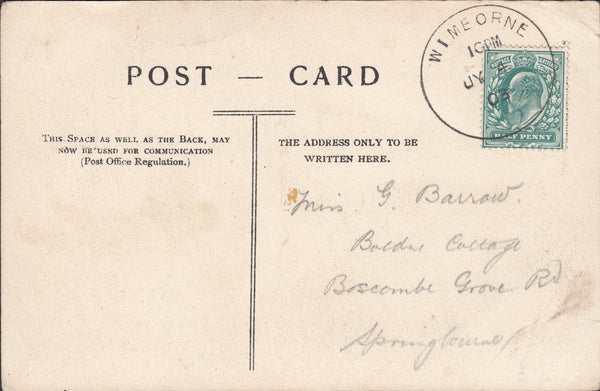 WIMBORNE
10PM
JY 4
POSTAGE REVENUE
HALFPENNY
POST — CARD
THIS SPACE AS WELL AS THE BACK, MAY
NOW BE USED FOR COMMUNICATION
(Post Office Regulation.)
THE ADDRESS ONLY TO BE
WRITTEN HERE.
Miss G. Barrow.
Cottage
Boscombe Grove Rd
Springbourne